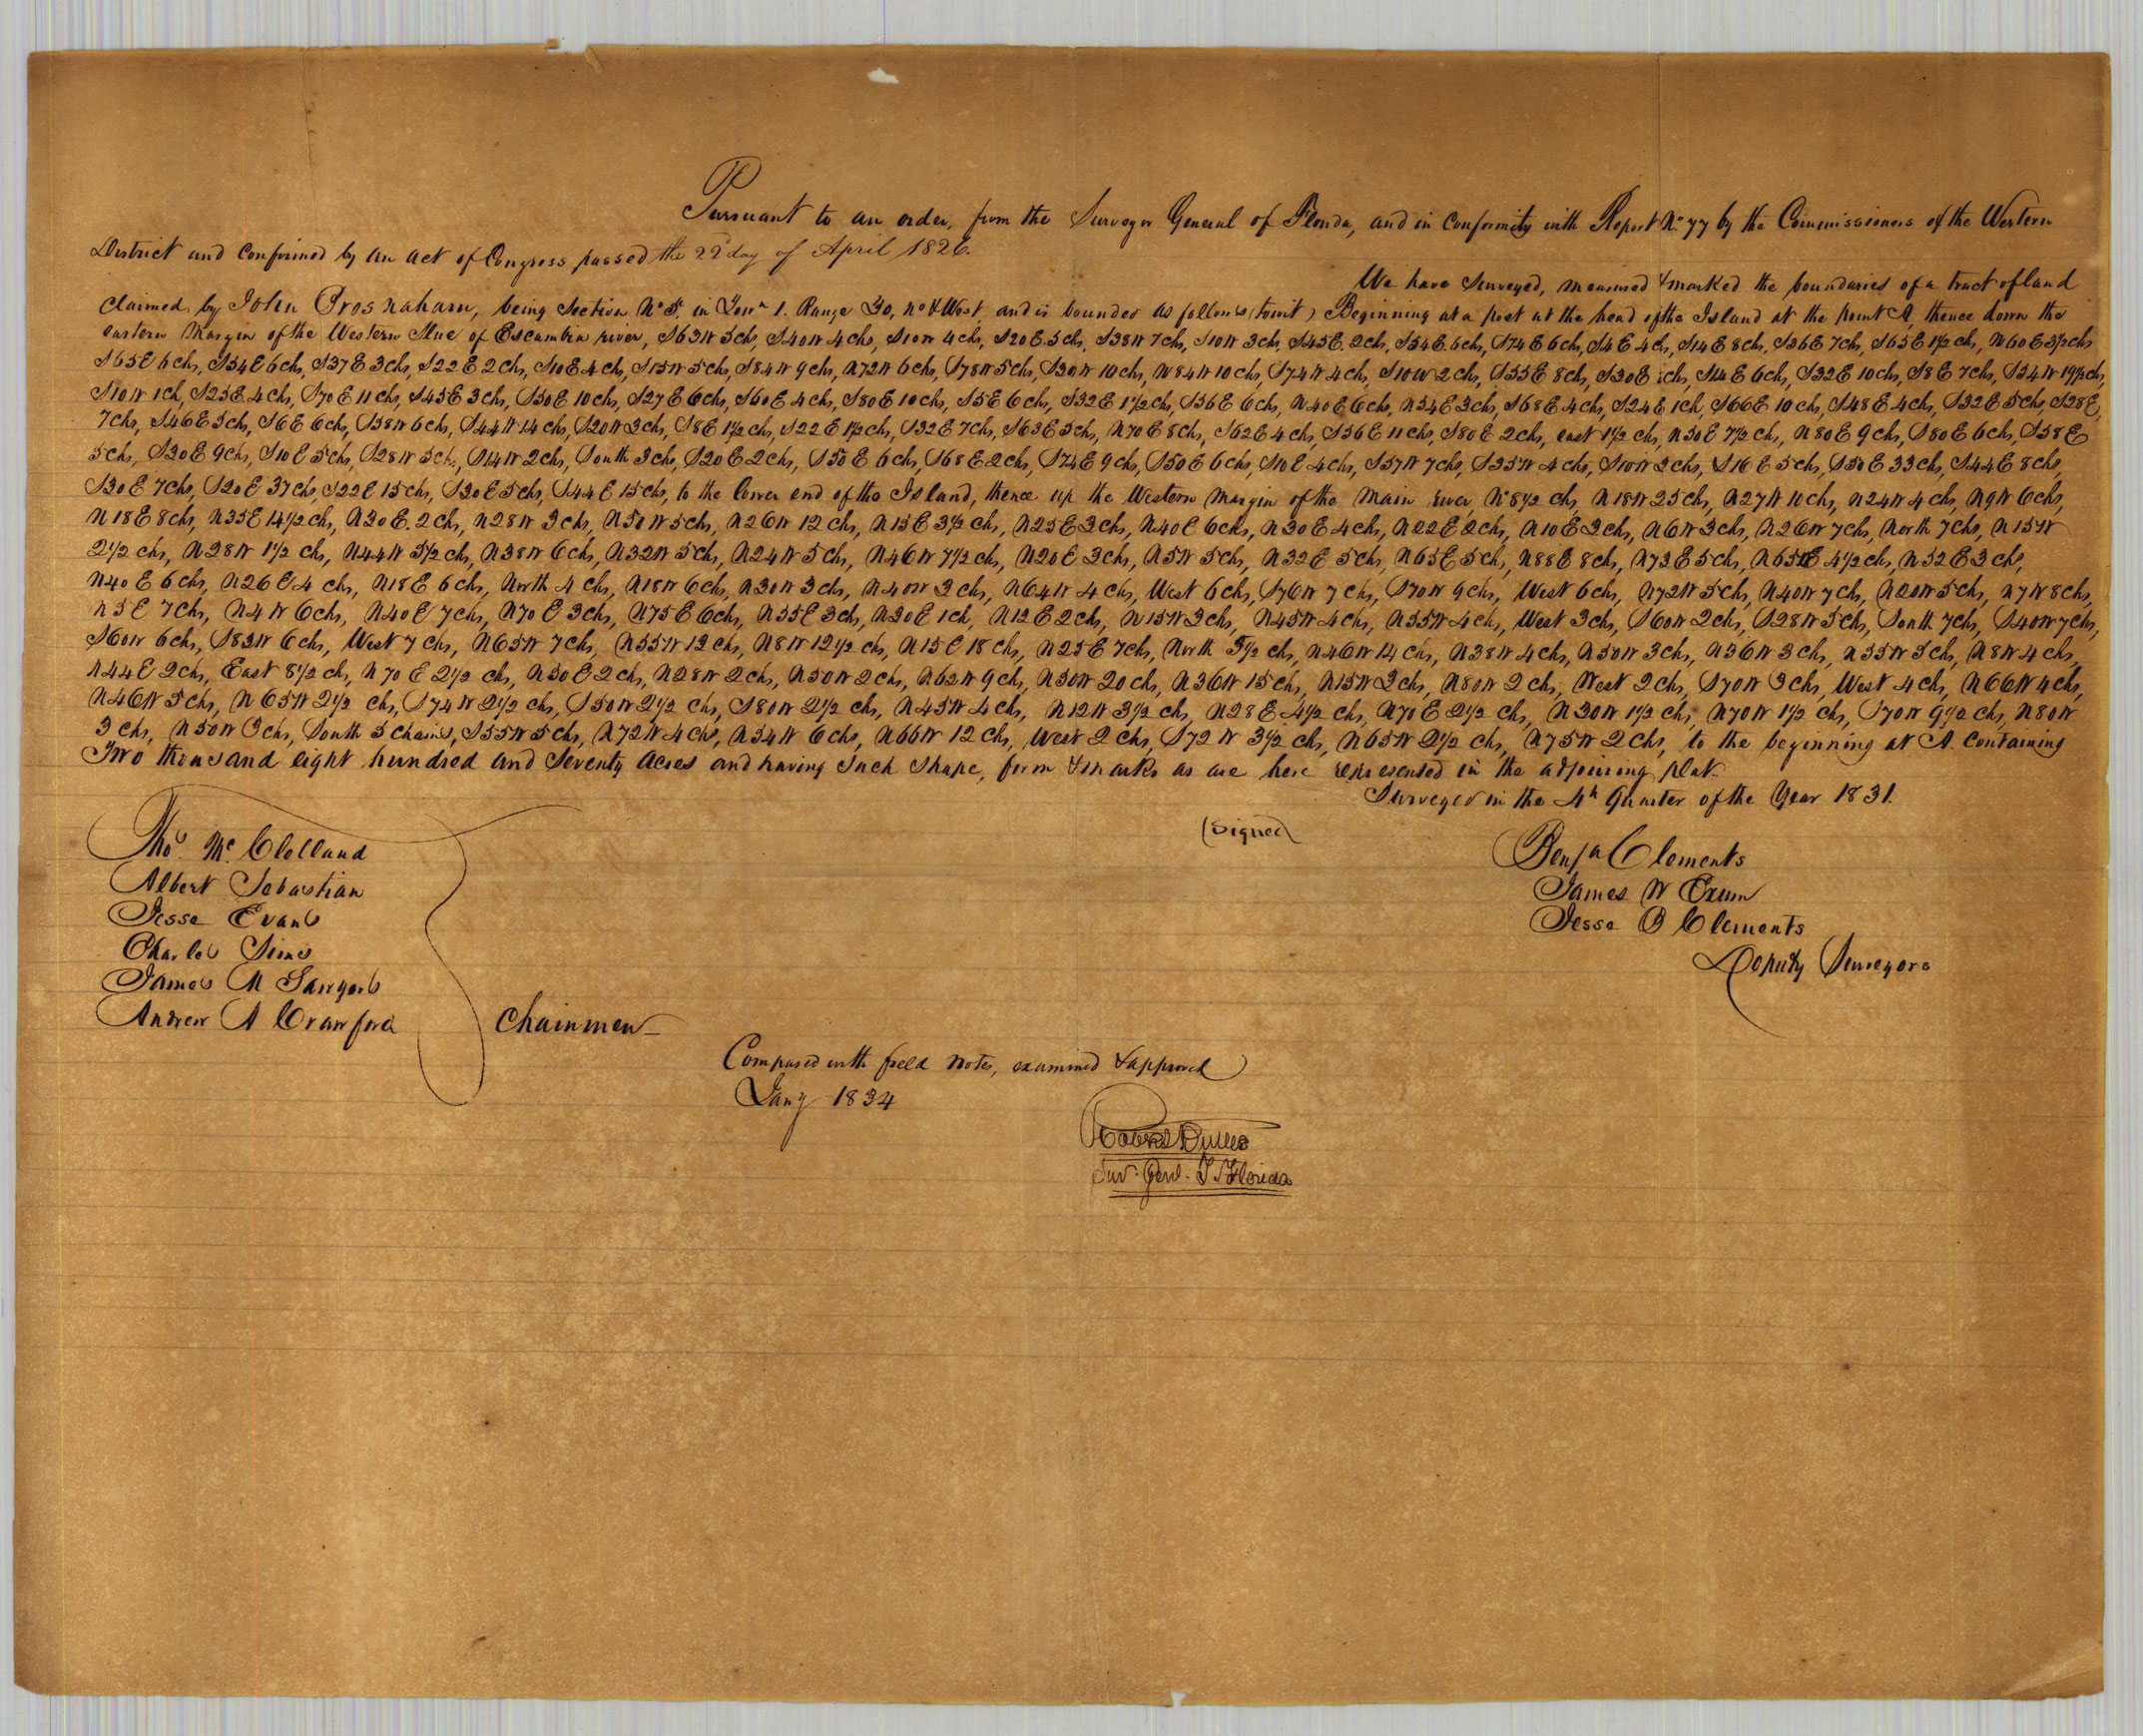 Pursuant to an order, from the Surveyor General of Florida, and in conformity with Report No. 77 by the Commissioners of the Western
District and confirmed by an act of Congress passed the 22d day of April 1826.
We have Surveyed, measured & marked the boundaries of a tract of land
claimed by John Brosnaham, being Section No. 5, in Town 1. Range 30, No & West and is bounded as follows (towit) Beginning at a post at the head of the Island at the point A, thence down the
eastern Margin of the Western Slue of Escambia river, S63W 5chs, S40W 4chs, S10W 4chs, S20E 5chs, S38W 7chs, S10W 3chs, S45E 2chs, S54E 6chs, S74E 6chs, S4E 4chs, S14E 8chs, S36E 7chs, S65E 1½chs, N60E 3½chs
S65E 6chs, S54E 6chs, S37E 3chs, S22E 2chs, S10E 4chs, S15W 5chs, S84W 9chs, N72W 6chs, S78W 5chs, S30W 10chs, N84W 10chs, S74W 4chs, S10W 2chs, S55E 8chs, S30E chs, S14E 6chs, S32E 10chs, S8E 7chs, S54W 19½chs,
S10W 1ch, S25E 4chs, S70E 11chs, S45E 3chs, S50E 10chs, S27E 6chs, S60E 4chs, S80E 10chs, S5E 6chs, S32E 1½chs, S56E 6chs, N40E 6chs, N54E 3chs, S68E 4chs, S24E 1ch, S66E 10chs, S48E 4chs, S32E 5chs, S28E,
7chs, S46E 5ch, S6E 6chs, S38W 6chs, S44W 14chs, S20W 3chs, S8E 1½chs, S22E 1½chs, S32E 7chs, S63E 5chs, N70E 8chs, S62E 4chs, S56E 11chs, S80E 2chs, east 1½chs, N50E 7½chs, N80E 9chs, S80E 6chs, S58E
5chs, S30E 9chs, S10E 5chs, S28W 5ch, S14W 2chs, South 3chs, S20E 2chs, S50E 6chs, S68E 2chs, S74E 9chs, S50E 6chs, S10E 4chs, S57W 7chs, S35W 4chs, S10W 3chs, S16E 5chs, S50E 33chs, S44E 8chs
S30E 7chs, S20E 37chs, S22E 15chs, S30E 5chs, S44E 15chs, to the lower end of the Island, thence up the Western margin of the Main river, N 8½chs, N18W 25chs, N27W 10chs, N24W 4chs, N9W 6chs,
N18E 8chs, N35E 14½chs, N30E 2chs, N28W 3chs, N50W 5chs, N26W 12chs, N15E 3½chs, N25E 3chs, N40E 6chs, N30E 4chs, N22E 2chs, N10E 3chs, N6W 3chs, N26W 7chs, North 7chs, N15W
2½chs, N28W 1½chs, N44W 5½chs, N38W 6chs, N32W 5chs, N24W 5chs, N46W 7½chs, N20E 3chs, N5W 5chs, N32E 5chs, N65E 5chs, N88E 8chs, N73E 5chs, N65E 4½chs, N52E 3chs,
N40E 6chs, N26E 4chs, N18E 6chs, North 4chs, N18W 6chs, N30W 3chs, N40W 3chs, N64W 4chs, West 6chs, S76W 7chs, S70W 9chs, West 6chs, N72W 5chs, N40W 7chs, N20W 5chs, N7W 8chs,
N5E 7chs, N4W 6chs, N40E 7chs, N70E 3chs, N75E 6chs, N55E 3chs, N30E 1ch, N12E 2chs, N15W 3chs, N45W 4chs, N55W 4chs, West 3chs, S60W 2chs, S28W 5chs, South 7chs, S40W 7chs,
S60W 6chs, S83W 6chs, West 7chs, N65W 7chs, N55W 12chs, N8W 12½chs, N15E 18chs, N25E 7chs, North 5½chs, N46W 14chs, N38W 4chs, N50W 3chs, N36W 3chs, N55W 5chs, N8W 4chs,
N44E 2chs, East 8½chs, N70E 2½chs, N50E 2chs, N28W 2chs, N50W 2chs, N62W 9chs, N50W 20chs, N36W 15chs, N15W 3chs, N80W 2chs, West 2chs, S70W 3chs, West 4chs, N66W 4chs,
N46W 5chs, N65W 2½chs, S74W 2½chs, S50W 2½chs, S80W 2½chs, N45W 4chs, N12W 3½chs, N28E 4½chs, N70E 2½chs, N30W 1½chs, N70W 1½chs, S70W 9½chs, N80W
3chs, N50W 3chs, South 5 chains, S55W 5chs, N72W 4chs, N34W 6chs, N66W 12chs, West 2chs, S72W 3½chs, N65W 2½chs, N75W 2chs, to the beginning at A. Containing
Two thousand eight hundred and Seventy Acres and having Such Shape, form & marks as are here represented in the adjoining plat.
Surveyed in the 4h Quarter of the Year 1831.
(Signed)
Thos. Mc. Clelland
Albert Sebastian
Jesse Evans
Charles Sims
James M Sawyers
Andrew A Crawford
Chainmen
Benja Clements
James W Exum
Jesse B Clements
Deputy Surveyors
Compared with field notes, examined & approved
Jany 1834
Robert Butler
Sur. Genl. T. Florida